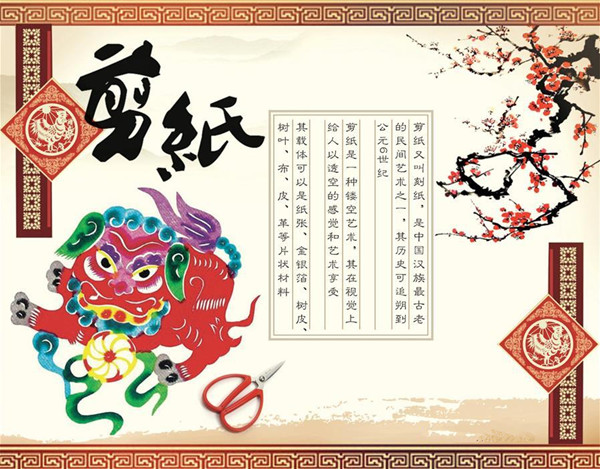 剪紙
剪纸又叫刻纸，是中国汉族最古老
的民间艺术之一，其历史可追朔到
公元6世纪
剪纸是一种镂空艺术，其在视觉上
给人以透空的感觉和艺术享受
其载体可以是纸张、金银箔、树皮、
树叶、布、皮、革等片状材料